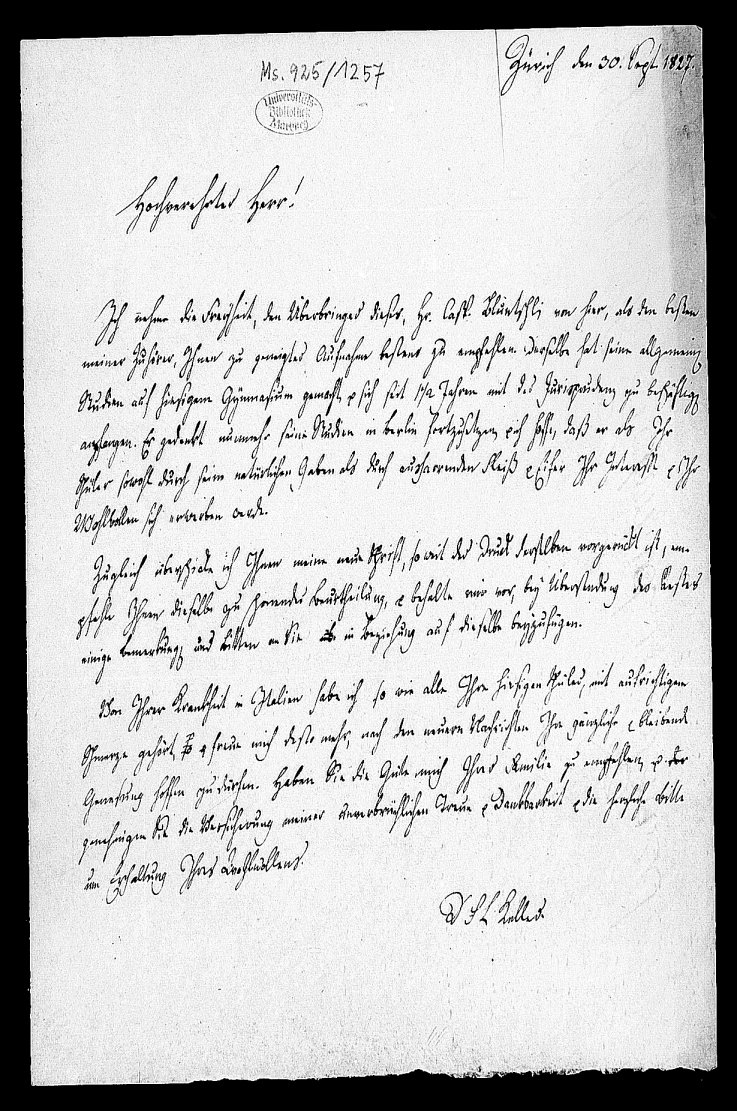 Ms. 925/1257
Universitäts-
Bibliothek
Marburg
Zürich den 30. Sept. 1827.
Hochverehrter Herr!
Ich nehme die Freyheit, den Überbringer dieses, Hr. Casp. Bluntschli von hier, als den besten
meiner Zuhörer, Ihnen zu geneigter Aufnahme bestens zu empfehlen. Derselbe hat seine allgemeinen
Studien auf hiesigem Gymnasium gemacht u sich seit 1 1/2 Jahren mit der Jurisprudenz zu beschäftigen
angefangen. Er gedenkt nunmehr seine Studien in Berlin fortzusetzen, u ich hoffe, daß er als Ihr
Schüler sowohl durch seine natürlichen Gaben als durch ausharrenden Fleiß u Eifer Ihr Interesse u Ihr
Wohlwollen sich erwerben werde.
Zugleich überschicke ich Ihnen meine neue Schrift, so weit der Druck derselben vorgerückt ist, em-
pfehle Ihnen dieselbe zu schonender Beurtheilung, u behalte mir vor, bey Übersendung des Restes
einige Bemerkungen und Bitten an Sie in Beziehung auf dieselbe beyzufügen.
Von Ihrer Krankheit in Italien habe ich so wie alle Ihre hiesigen Schüler, mit aufrichtigem
Schmerze gehört, u freue mich desto mehr, nach den neuern Nachrichten Ihre gänzliche u bleibende
Genesung hoffen zu dürfen. Haben Sie die Güte mich Ihrer Familie zu empfehlen, u
genehmigen Sie die Versicherung meiner unverbrüchlichen Treue u Dankbarkeit u die herzliche Bitte
um Erhaltung Ihres Wohlwollens.
D F L Keller.